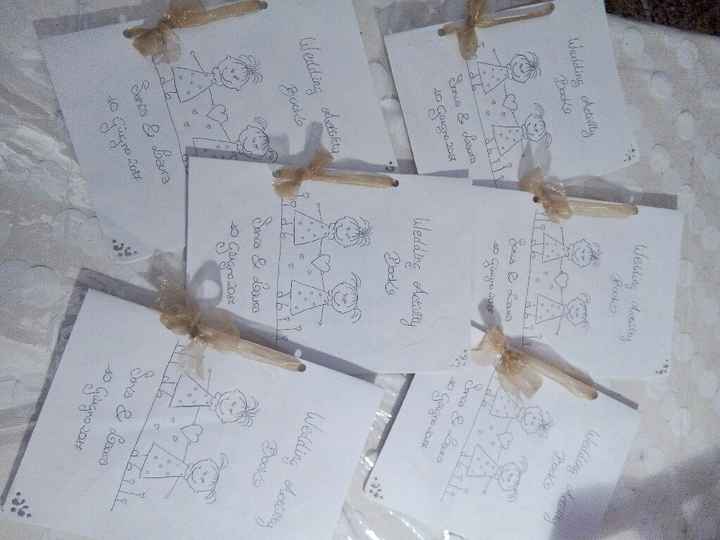 Wedding Activity
Books
Sonia & Laura
10 Giugno 2017
Wedding Activity
Books
Sonia & Laura
10 Giugno 2017
Wedding Activity
Books
Sonia & Laura
10 Giugno 2017
Wedding Activity
Books
Sonia & Laura
10 Giugno 2017
Wedding Activity
Books
Sonia & Laura
10 Giugno 2017
Wedding Activity
Books
Sonia & Laura
10 Giugno 2017